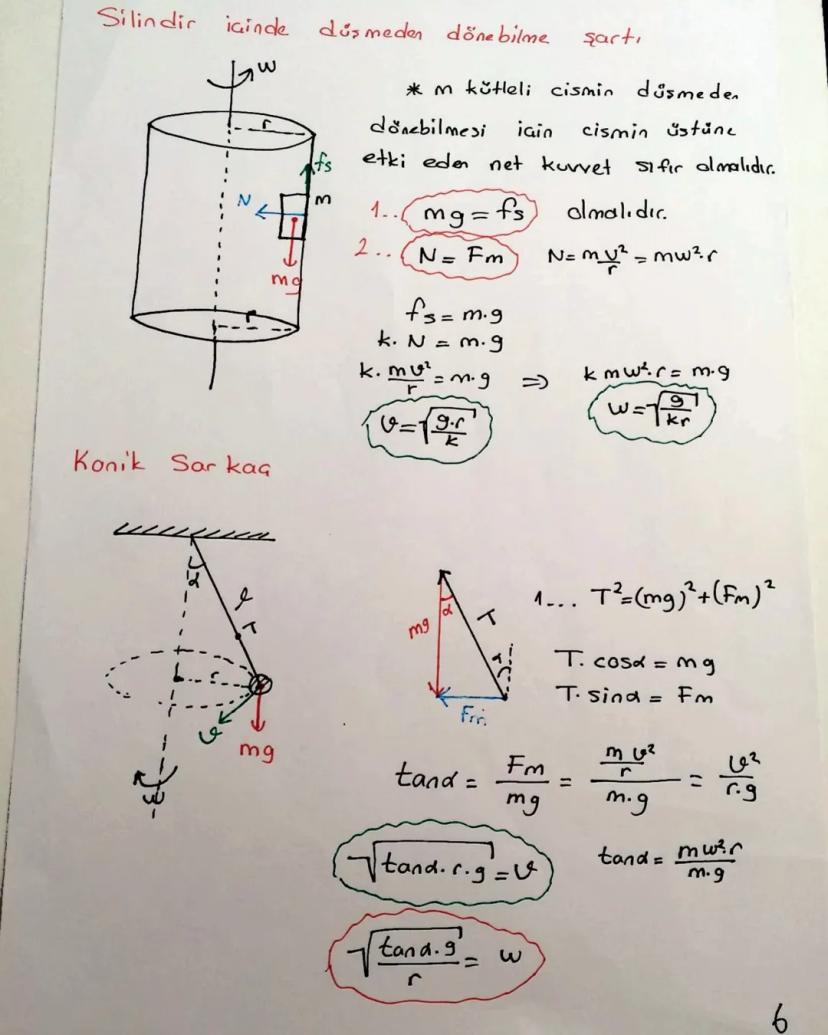 Silindir içinde düşmeden dönebilme şartı
w
r
fs
N
m
mg
r
* m kütleli cismin düşmeden
dönebilmesi için cismin üstüne
etki eden net kuvvet sıfır olmalıdır.
1.. mg = fs olmalıdır.
2.. N = Fm N = m v²/r = mw².r
fs = m.g
k. N = m.g
k. m v²/r = m.g => k m w².r = m.g
v = √(g.r/k) w = √(g/kr)
Konik Sarkaç
α
l
T
r
v
mg
w
mg
α
T
α
Fm
1... T² = (mg)² + (Fm)²
T. cosα = mg
T. sinα = Fm
tanα = Fm/mg = (m v²/r)/(m.g) = v²/(r.g)
√(tanα.r.g) = v tanα = m w².r/(m.g)
√(tanα.g/r) = w
6